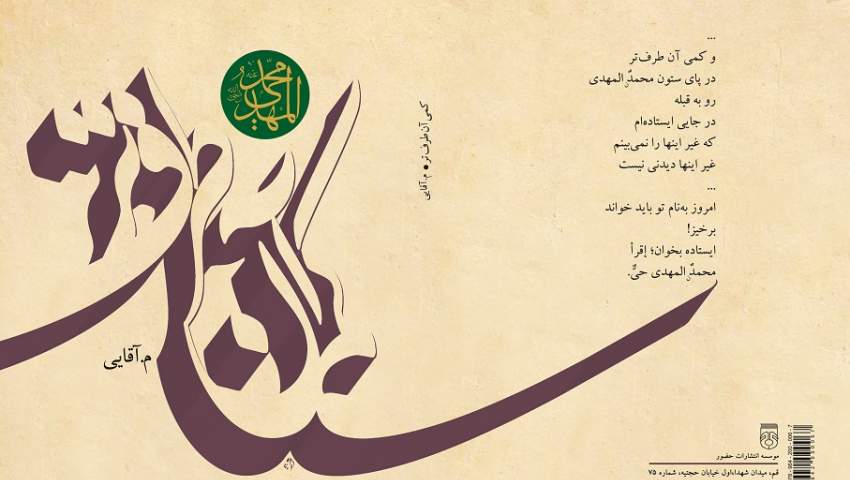 ...
و کمی آن طرف‌تر
در پای ستون محمدٌنِ‌المهدی
رو به قبله
در جایی ایستاده‌ام
که غیر اینها را نمی‌بینم
غیر اینها دیدنی نیست
...
امروز به‌نام تو باید خواند
برخیز!
ایستاده بخوان؛ إقرأ
محمدٌنِ‌المهدی حیٌّ.
موسسه انتشارات حضور
قم، میدان شهدا،اول خیابان حجتیه، شماره ۷۵
کمی آن‌طرف‌تر • م.آقایی
محمد المهدی
م.آقایی